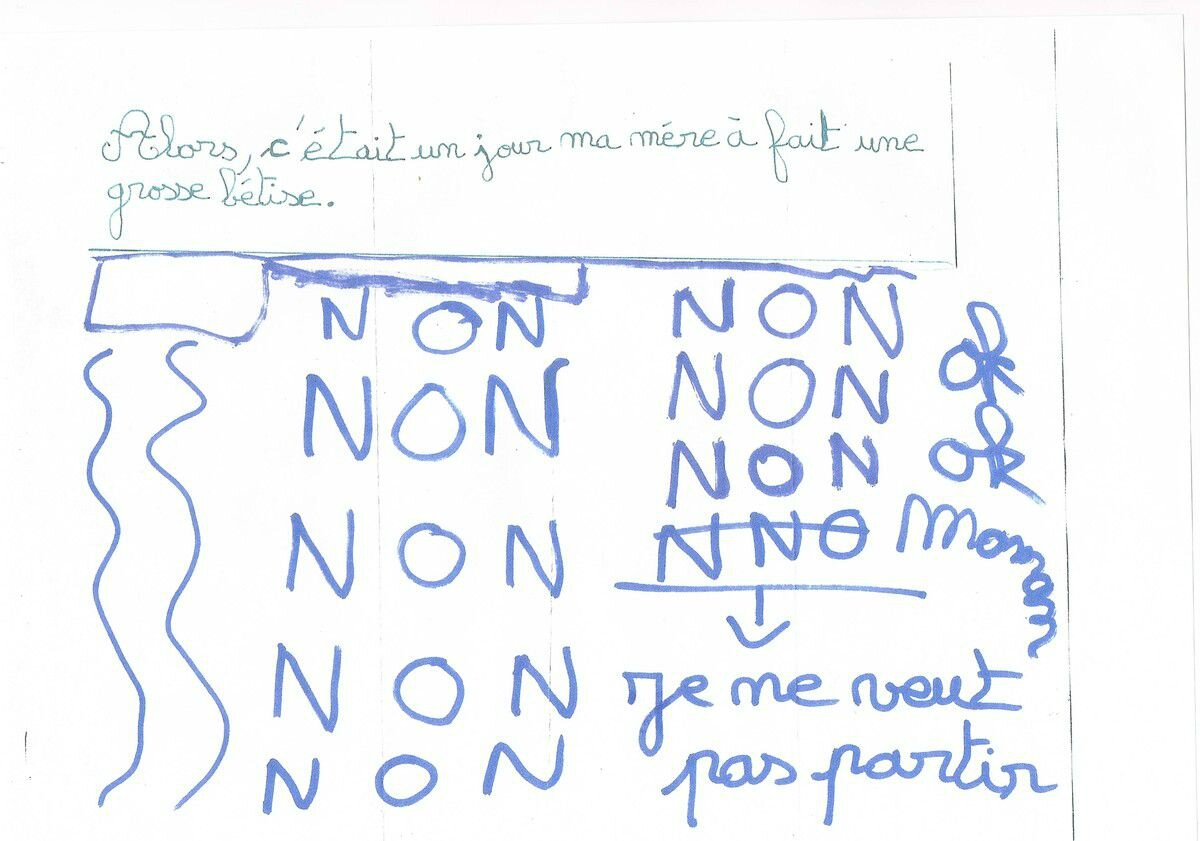 Alors, c'était un jour ma mére à fait une
grosse bétise.
NON
NON
NON
NON
NON
NON
NON
NON
NNO
ok
ok
Maman
je ne veut
pas partir